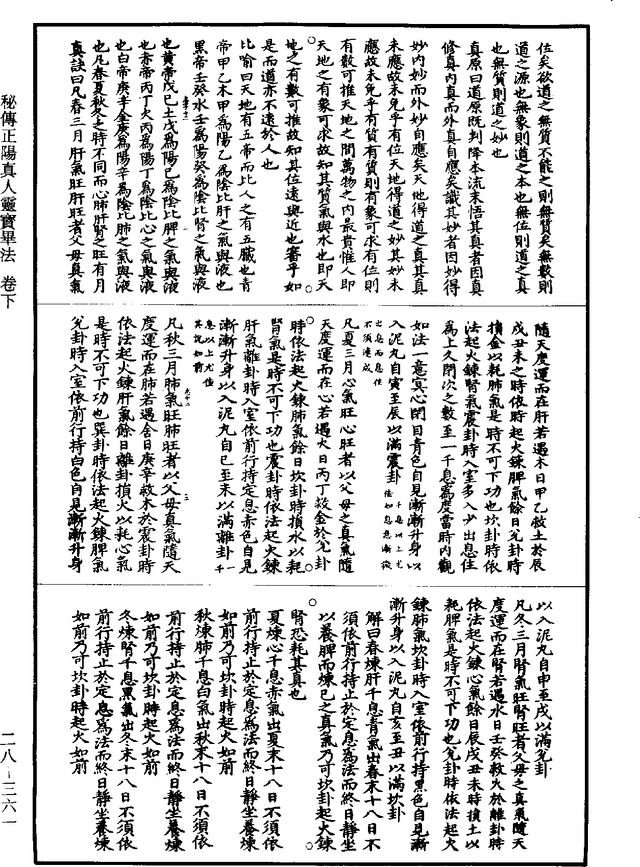 位矣欲道之無質不能之則無質矣無數則
道之源也無象則道之本也無位則道之真
也無質則道之妙也
真原曰道原既判降本流末悟其真者因真
修真內真而外真自應矣識其妙者因妙得
妙內妙而外妙自應矣天地得道之真其真
未應故未免乎有位天地得道之妙其妙未
應故未免乎有質有質則有象可求有位則
有數可推天地之間萬物之內最貴惟人即
天地之有象可求故知其質氣與水也即天
地之有數可推故知其位遠與近也審乎如
是而道亦不遠於人也
比喻曰天地有五帝而比人之有五臟也青
帝甲乙木甲為陽乙為陰比肝之氣與液也
黑帝壬癸水壬為陽癸為陰比腎之氣與液
也黃帝戊己土戊為陽己為陰比脾之氣與液
也赤帝丙丁火丙為陽丁為陰比心之氣與液
也白帝庚辛金庚為陽辛為陰比肺之氣與液
也凡春夏秋冬之時不同而心肺肝腎之旺有月
真訣曰凡春三月肝氣旺肝旺者父母真氣
隨天度運而在肝若遇木日甲乙剋土於辰
戌丑未之時依時起火鍊脾氣餘日兌卦時
損金以耗肺氣是時不可下功也坎卦時依
法起火鍊腎氣震卦時入室多入少出息住
為上久閉次之數至一千息為度當時內觀
如法一意冥心閉目青色自見漸漸升身以
入泥丸自寅至辰以滿震卦
凡夏三月心氣旺心旺者以父母之真氣隨
天度運而在心若遇火日丙丁剋金於兌卦
時依法起火鍊肺氣餘日坎卦時損水以耗
腎氣是時不可下功也震卦時依法起火鍊
肝氣離卦時入室依前行持定息赤色自見
漸漸升身以入泥丸自巳至未以滿離卦
凡秋三月肺氣旺肺旺者以父母真氣隨天
度運而在肺若遇金日庚辛剋木於震卦時
依法起火鍊肝氣餘日離卦損火以耗心氣
是時不可下功也巽卦時依法起火鍊脾氣
兌卦時入室依前行持白色自見漸漸升身
以入泥丸自申至戌以滿兌卦
凡冬三月腎氣旺腎旺者父母之真氣隨天
度運而在腎若遇水日壬癸剋火於離卦時
依法起火鍊心氣餘日辰戌丑未時損土以
耗脾氣是時不可下功也兌卦時依法起火
鍊肺氣坎卦時入室依前行持黑色自見漸
漸升身以入泥丸自亥至丑以滿坎卦
解曰春煉肝千息青氣出春末十八日不
須依前行持止於定息為法而終日靜坐
以養脾而煉己之真氣乃可坎卦起火鍊
腎恐耗其真也
夏煉心千息赤氣出夏末十八日不須依
前行持止於定息為法而終日靜坐養煉
如前乃可震卦時起火如前
秋煉肺千息白氣出秋末十八日不須依
前行持止於定息為法而終日靜坐養煉
如前乃可坎卦時起火如前
冬煉腎千息黑氣出冬末十八日不須依
前行持止於定息為法而終日靜坐養煉
如前乃可坎卦時起火如前
秘傳正陽真人靈寶畢法 卷下
二八-三六一